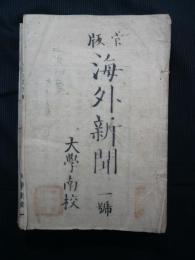 官版
海外新聞
一號
大學南校